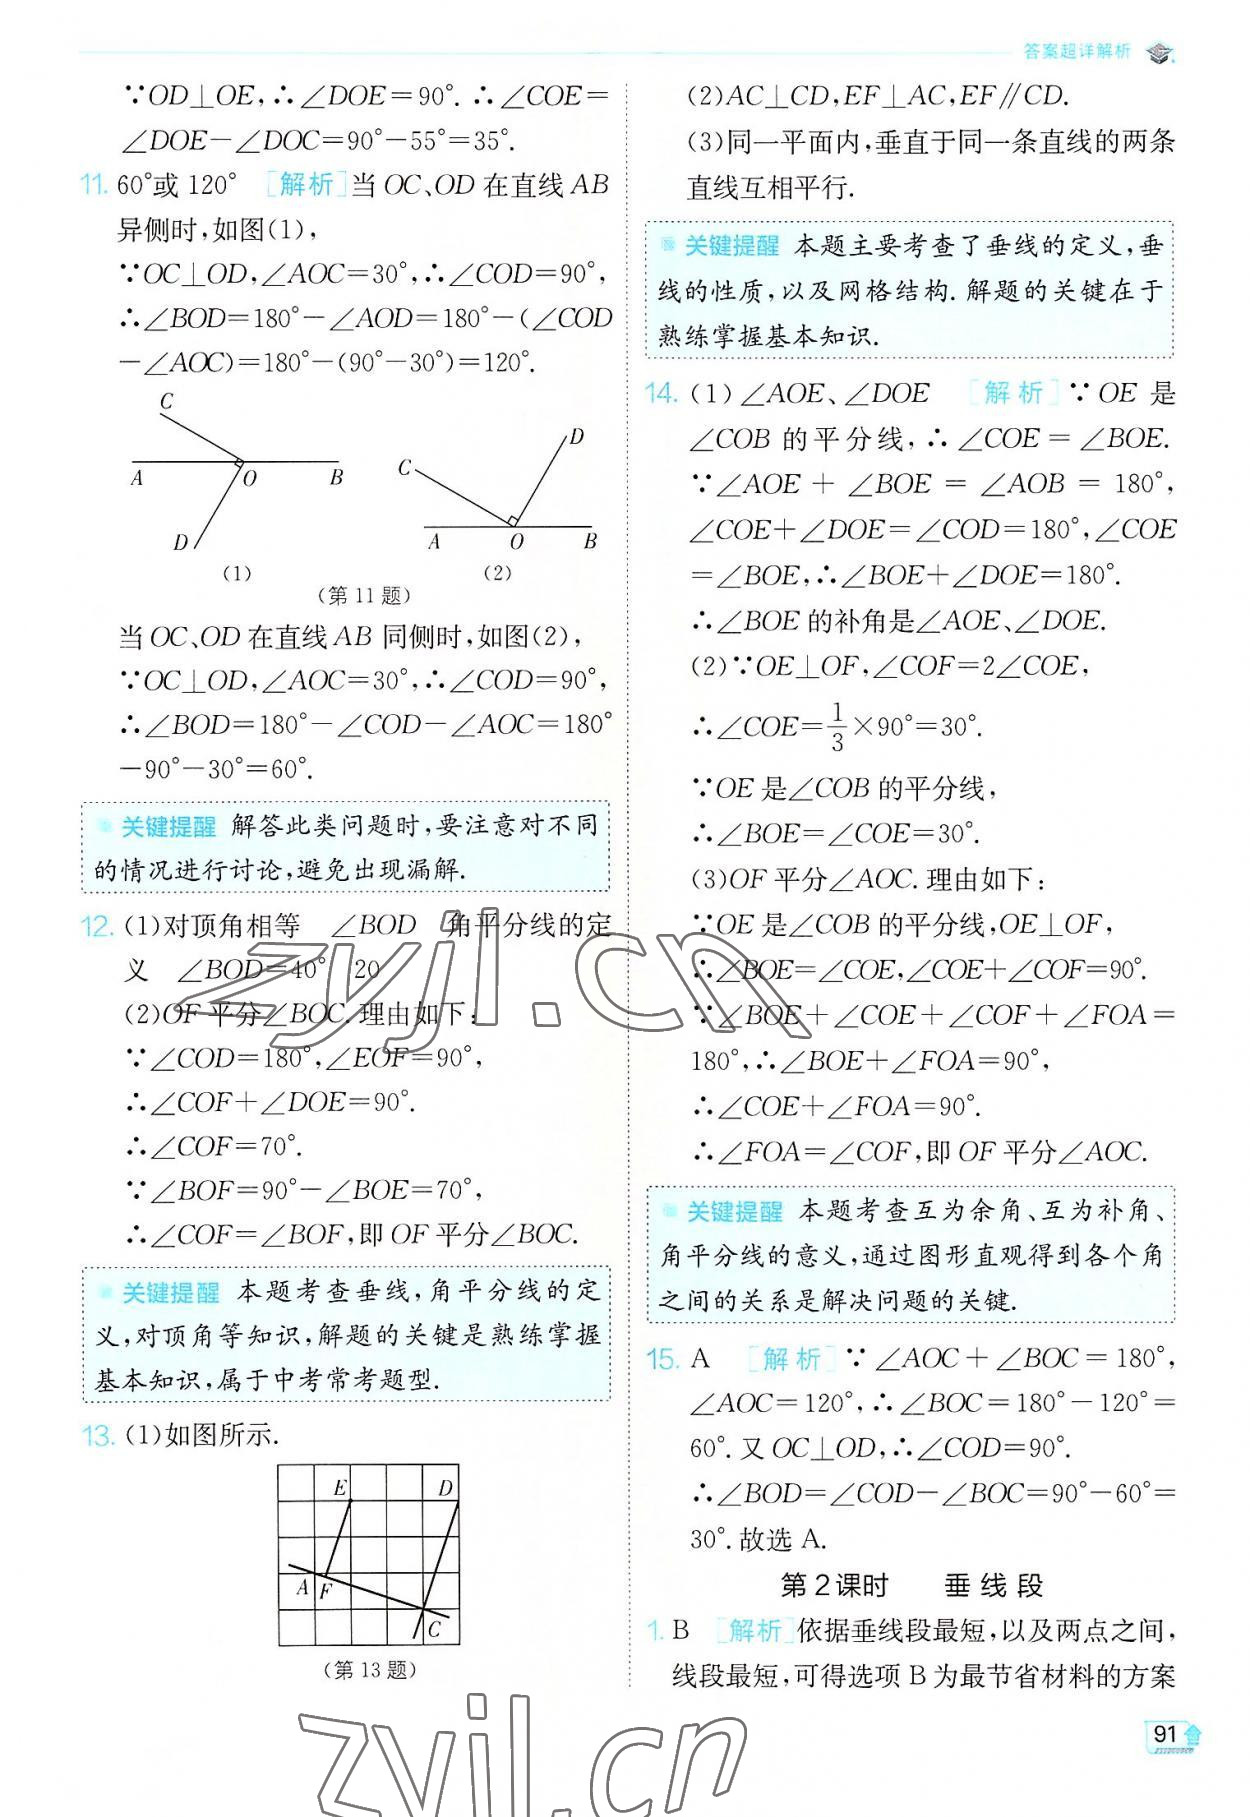 答案超详解析
∵OD⊥OE,∴∠DOE=90°.∴∠COE=
∠DOE-∠DOC=90°-55°=35°.
11. 60°或 120° [解析]当 OC、OD 在直线 AB
异侧时,如图(1),
∵OC⊥OD,∠AOC=30°,∴∠COD=90°,
∴∠BOD=180°-∠AOD=180°-(∠COD
-∠AOC)=180°-(90°-30°)=120°.
C
A O B
D
(1)
D
C
A O B
(2)
(第 11 题)
当 OC、OD 在直线 AB 同侧时,如图(2),
∵OC⊥OD,∠AOC=30°,∴∠COD=90°,
∴∠BOD=180°-∠COD-∠AOC=180°
-90°-30°=60°.
关键提醒 解答此类问题时,要注意对不同
的情况进行讨论,避免出现漏解.
12. (1)对顶角相等 ∠BOD 角平分线的定
义 ∠BOD=40° 20
(2)OF 平分∠BOC.理由如下:
∵∠COD=180°,∠EOF=90°,
∴∠COF+∠DOE=90°.
∴∠COF=70°.
∵∠BOF=90°-∠BOE=70°,
∴∠COF=∠BOF,即 OF 平分∠BOC.
关键提醒 本题考查垂线,角平分线的定
义,对顶角等知识,解题的关键是熟练掌握
基本知识,属于中考常考题型.
13. (1)如图所示.
E D
A F
C
(第 13 题)
(2)AC⊥CD,EF⊥AC,EF∥CD.
(3)同一平面内,垂直于同一条直线的两条
直线互相平行.
关键提醒 本题主要考查了垂线的定义,垂
线的性质,以及网格结构.解题的关键在于
熟练掌握基本知识.
14. (1)∠AOE、∠DOE [解析]∵OE 是
∠COB 的平分线,∴∠COE=∠BOE.
∵∠AOE+∠BOE=∠AOB=180°,
∠COE+∠DOE=∠COD=180°,∠COE
=∠BOE,∴∠BOE+∠DOE=180°.
∴∠BOE 的补角是∠AOE、∠DOE.
(2)∵OE⊥OF,∠COF=2∠COE,
∴∠COE=1/3×90°=30°.
∵OE 是∠COB 的平分线,
∴∠BOE=∠COE=30°.
(3)OF 平分∠AOC.理由如下:
∵OE 是∠COB 的平分线,OE⊥OF,
∴∠BOE=∠COE,∠COE+∠COF=90°.
∵∠BOE+∠COE+∠COF+∠FOA=
180°,∴∠BOE+∠FOA=90°,
∴∠COE+∠FOA=90°.
∴∠FOA=∠COF,即 OF 平分∠AOC.
关键提醒 本题考查互为余角、互为补角、
角平分线的意义,通过图形直观得到各个角
之间的关系是解决问题的关键.
15. A [解析]∵∠AOC+∠BOC=180°,
∠AOC=120°,∴∠BOC=180°-120°=
60°.又 OC⊥OD,∴∠COD=90°.
∴∠BOD=∠COD-∠BOC=90°-60°=
30°.故选 A.
第 2 课时 垂线段
1. B [解析]依据垂线段最短,以及两点之间,
线段最短,可得选项 B 为最节省材料的方案
91
zyjl.cn
zyjl.cn